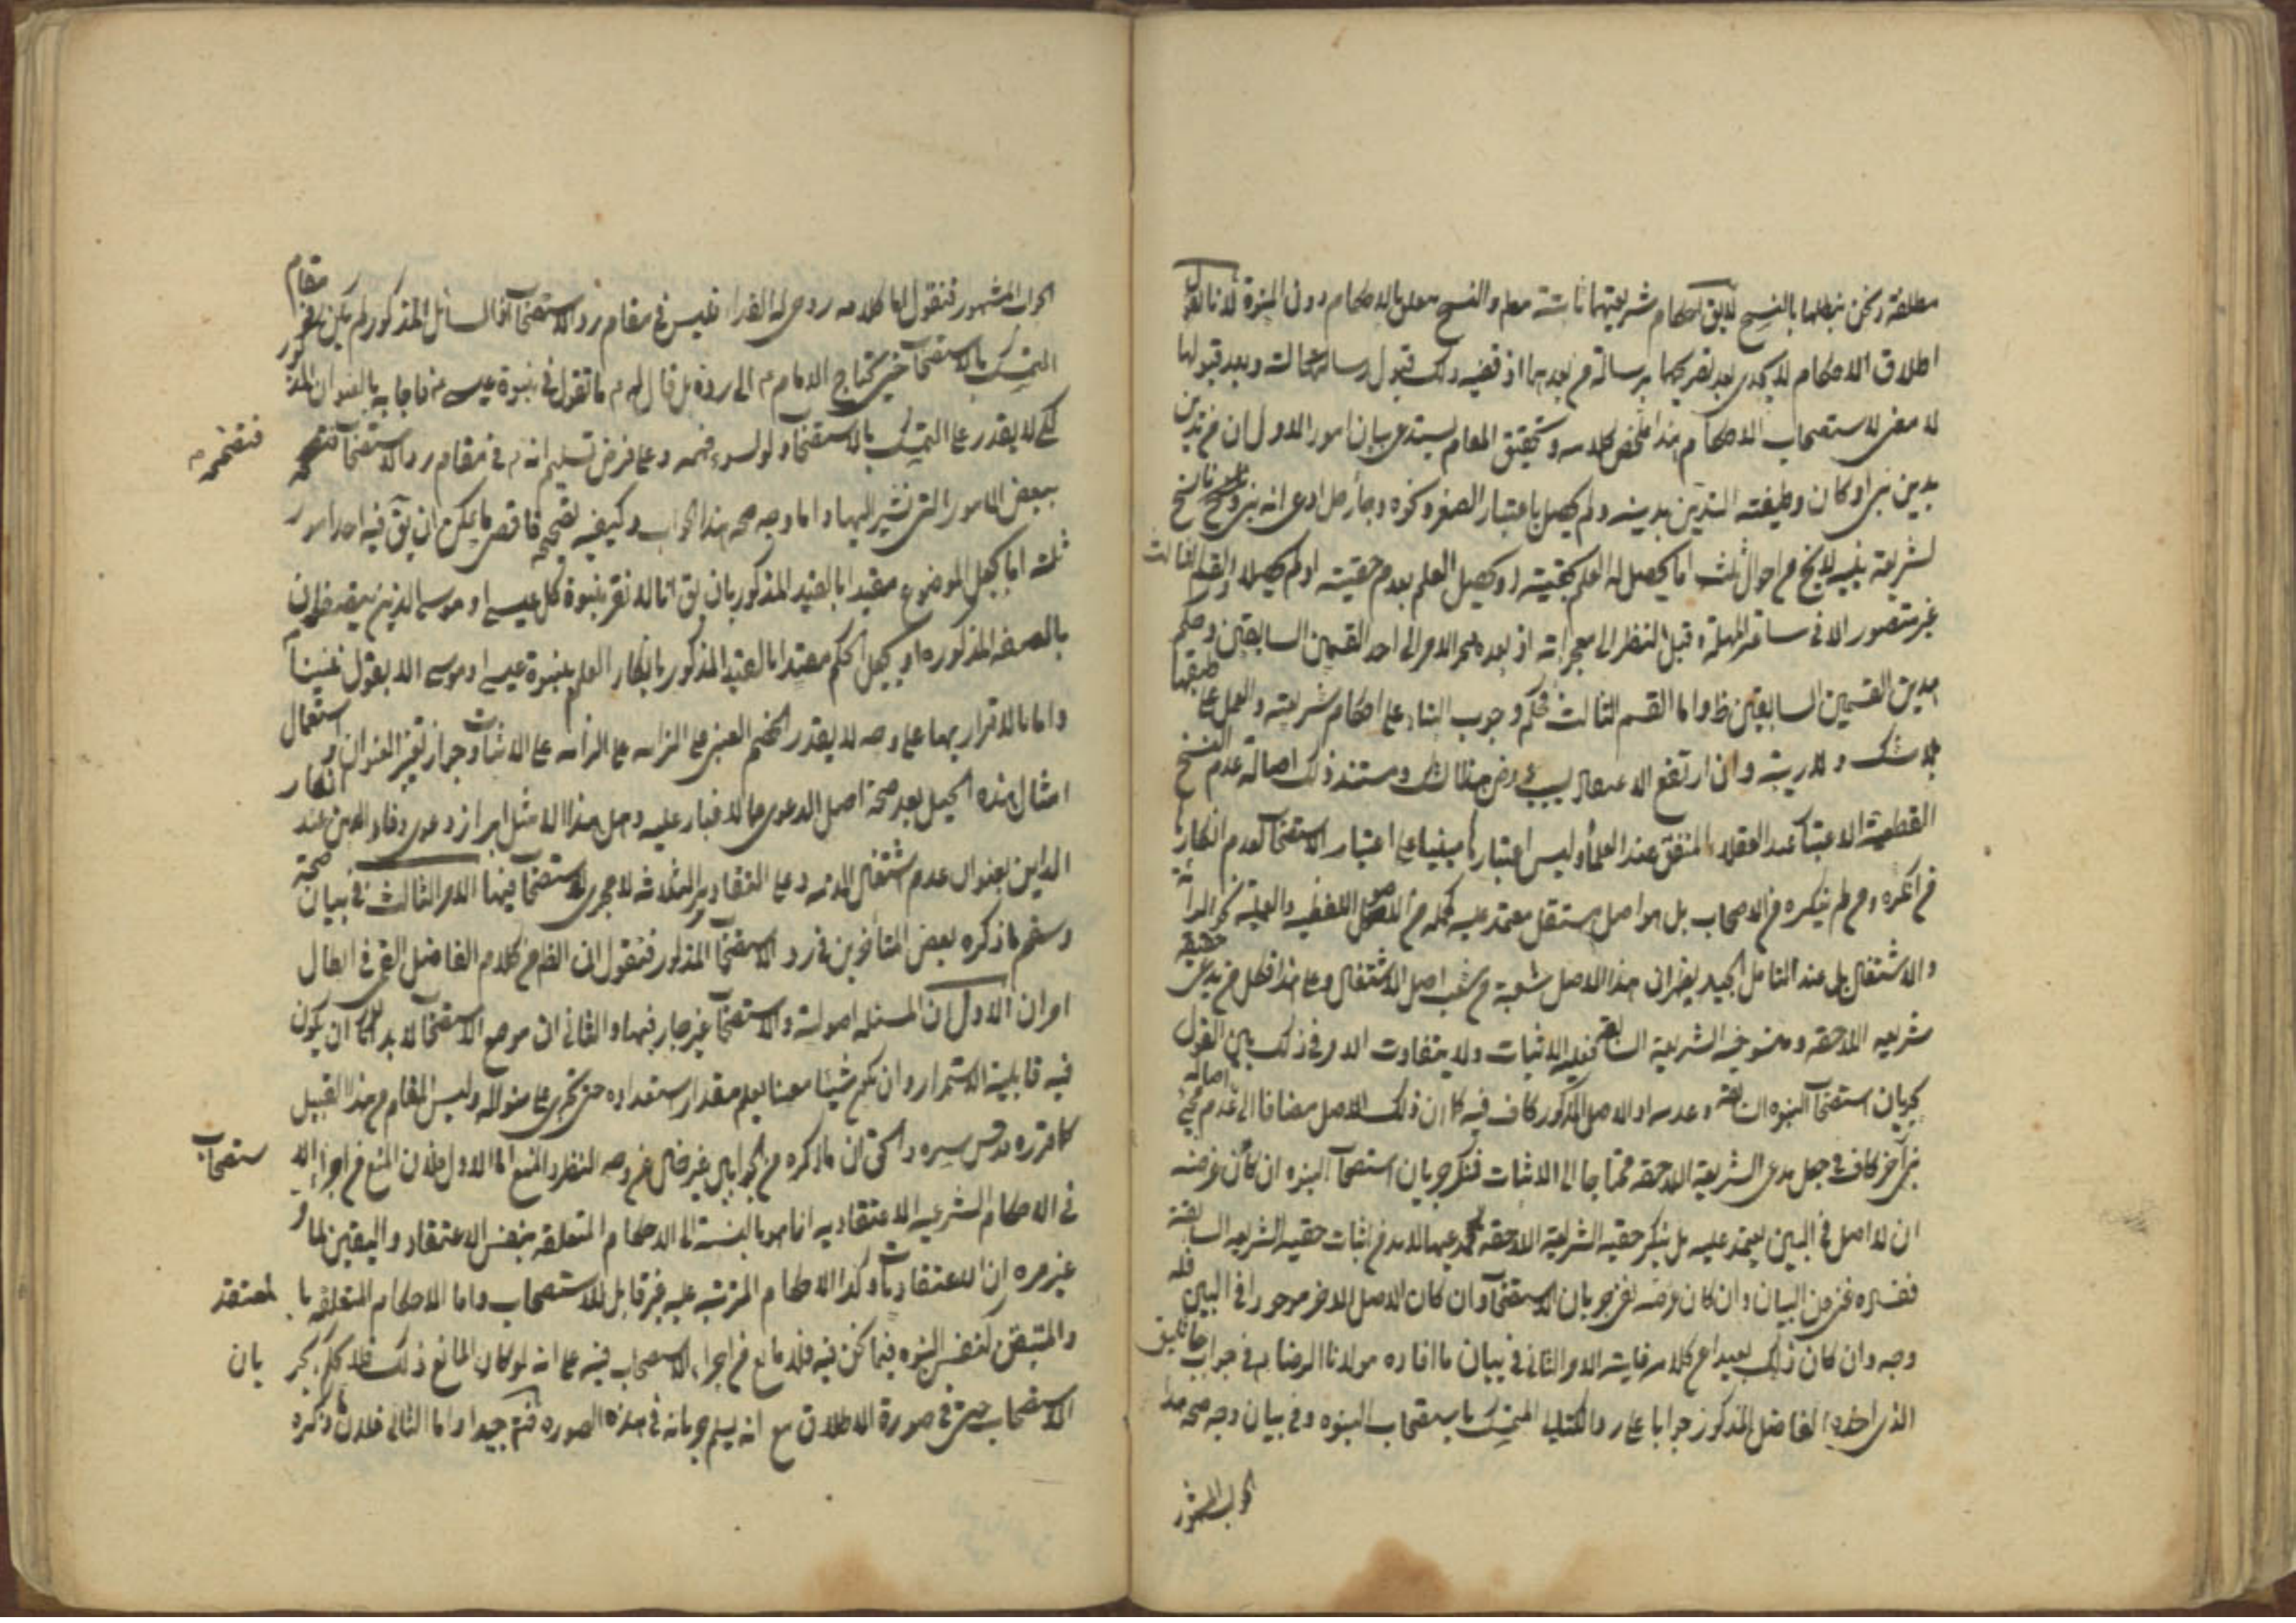 مطلقة ونحن نبطلها بالنسخ لا يق احكام شريعتهما ثابتة معلم والنسخ يتعلق بالاحكام دون النبوة لانا نقول
اطلاق الاحكام لا يجدى بعد تصريحهما برسالة من بعدهما اذ قضيه ذلك قبول رسالة الثالث وبعد قبولها
لا معنى لاستصحاب الاحكام هذا ملخص كلامه وتحقيق المقام يستدعى بيان امور الاول ان من تدين
بدين نبى او كان وظيفته التدين بدينه ولم يحصل باعتبار الصغر وكذه وجاء رجل ادعى انه نبى وشرعه ناسخ
لشريعة نبيه لا يخ من احوال ثلث اما يحصل له العلم بحقيته او يحصل العلم بعدم حقيته او لم يحصلا والقسم الثالث
غير متصور الا فى ساعة المهلة وقبل النظر الى معجزاته اذ بعده ينجر الامر الى احد القسمين السابقين وحكم
هذين القسمين السابقين ظ واما القسم الثالث فحكمه وجوب البناء على احكام شريعته والعمل على طبقها
بلا شك ولا ريبة وان ارتفع الاعتقاد بسبب عروض هذا الشك ومستند ذلك اصالة عدم النسخ
القطعية الاعتبار عند العقلاء المتفق عند العلماء وليس اعتبارها مبنيا على اعتبار الاستصحاب لعدم انكارها
من انكره ومن لم ينكره من الاصحاب بل هو اصل مستقل معتمد عليه كجملة من الاصول اللفظيه والعمليه نحو البرائة
والاشتغال بل عند التامل الجيد يظهر ان هذا الاصل شعبة من شعب اصل الاشتغال وعلى هذا فكل من يدعى حقيقة
شريعه اللاحقه ومنسوخيه الشريعة السابقه فعليه الاثبات ولا يتفاوت الامر فى ذلك بين القول
بجريان استصحاب النبوه السابقه وعدمه اذ الاصل المذكور كاف فيه كما ان ذلك الاصل مضافا الى اصالة عدم مجئ
نبى آخر كاف فى جعل مدعى الشريعة اللاحقه محتاجا الى الاثبات فمنكر جريان استصحاب النبوه ان كان غرضه
ان لا اصل فى البين يعتمد عليه بل منكر حقيه الشريعة اللاحقه كمدعيها لابد من اثبات حقيه الشريعه السابقة
ففساده غنى عن البيان وان كان غرضه نفى جريان الاستصحاب وان كان الاصل الاخر موجودا فى البين فله
وجه وان كان ذلك بعيدا عن كلامه غايته الامر الثانى فى بيان ما افاده مولانا الرضا ع فى جواب جاثليق
الذى اخذه الفاضل المذكور جوابا على رد الكتابى المتمسك باستصحاب النبوه وفى بيان وجه صحه هذا
الجواب المشهور
الجواب المشهور فنقول اما كلامه روحى له الفداء فليس فى مقام رد الاستصحاب اذ السائل المذكور لم يكن فى مقام
التمسك بالاستصحاب حتى يحتاج الامام ع الى رده بل قال له ع ما تقول فى نبوة عيسى ع فاجابه بالعنوان المذكور
لكى لا يقدر على التمسك بالاستصحاب ولو لسوء فهمه وعلى فرض تسليم انه ع فى مقام رد الاستصحاب فنقحه
فنقحه م
ببعض الامور التى نشير اليها واما وجه صحه هذا الجواب وكيفيه تصحيحه فاقصى ما يمكن ان يق فيه احد امور
ثلثه اما بجعل الموضوع مقيدا بالقيد المذكور بان يق انا لا نقر بنبوة كل عيسى او موسى الذين يتصفان
بالصفه المذكوره او بجعل الحكم مقيدا بالقيد المذكور بانكار العلم بنبوة عيسى او موسى الا بقول نبينا
واما بالاقرار بهما على وجه لا يقدر الخصم الغبى على الزامه على الاثبات وجواز تغيير العنوان واستعمال
امثال هذه الحيل بعد صحة اصل الدعوى مما لا غبار عليه وهل هذا الا مثل ابراز دعوى وفاء الدين عند انكار
الداين بعنوان عدم اشتغال الذمه وعلى التقادير الثلاثه لا مجرى للاستصحاب فيها الامر الثالث فى بيان صحة
وسقم ما ذكره بعض المتأخرين فى رد الاستصحاب المذكور فنقول ان الظ من كلام الفاضل القمى فى ابطال
امران الاول ان المسئله اصولية والاستصحاب غير جار فيها والثانى ان موضع الاستصحاب لابد ان يكون
فيه قابلية الاستمرار وان يكون شيئا معينا يعلم مقدار استعداده حتى يجرى على منواله وليس المقام من هذا القبيل
كما قرره قدس سره والحق ان ما ذكره من الجوابين غير خال عن وجه النظر والمنع اما الاول فلان المنع من اجراء الا
ستصحاب
فى الاحكام الشرعيه الاعتقاديه انما هو بالنسبة الى الاحكام المتعلقه بنفس الاعتقاد واليقين لما مر
غير مره ان الاعتقاديات وكذا الاحكام المترتبه عليه غير قابل للاستصحاب واما الاحكام المتعلقه بالمعتقد
والمتيقن كنفس النبوه فيما نحن فيه فلا مانع من اجراء الاستصحاب فيه على انه لو كان المانع ذلك فلا يحكم بجريان
الاستصحاب حتى فى صورة الاطلاق مع انه يسلم جريانه فى هذه الصوره فتدبر جيدا واما الثانى فلان ما ذكره